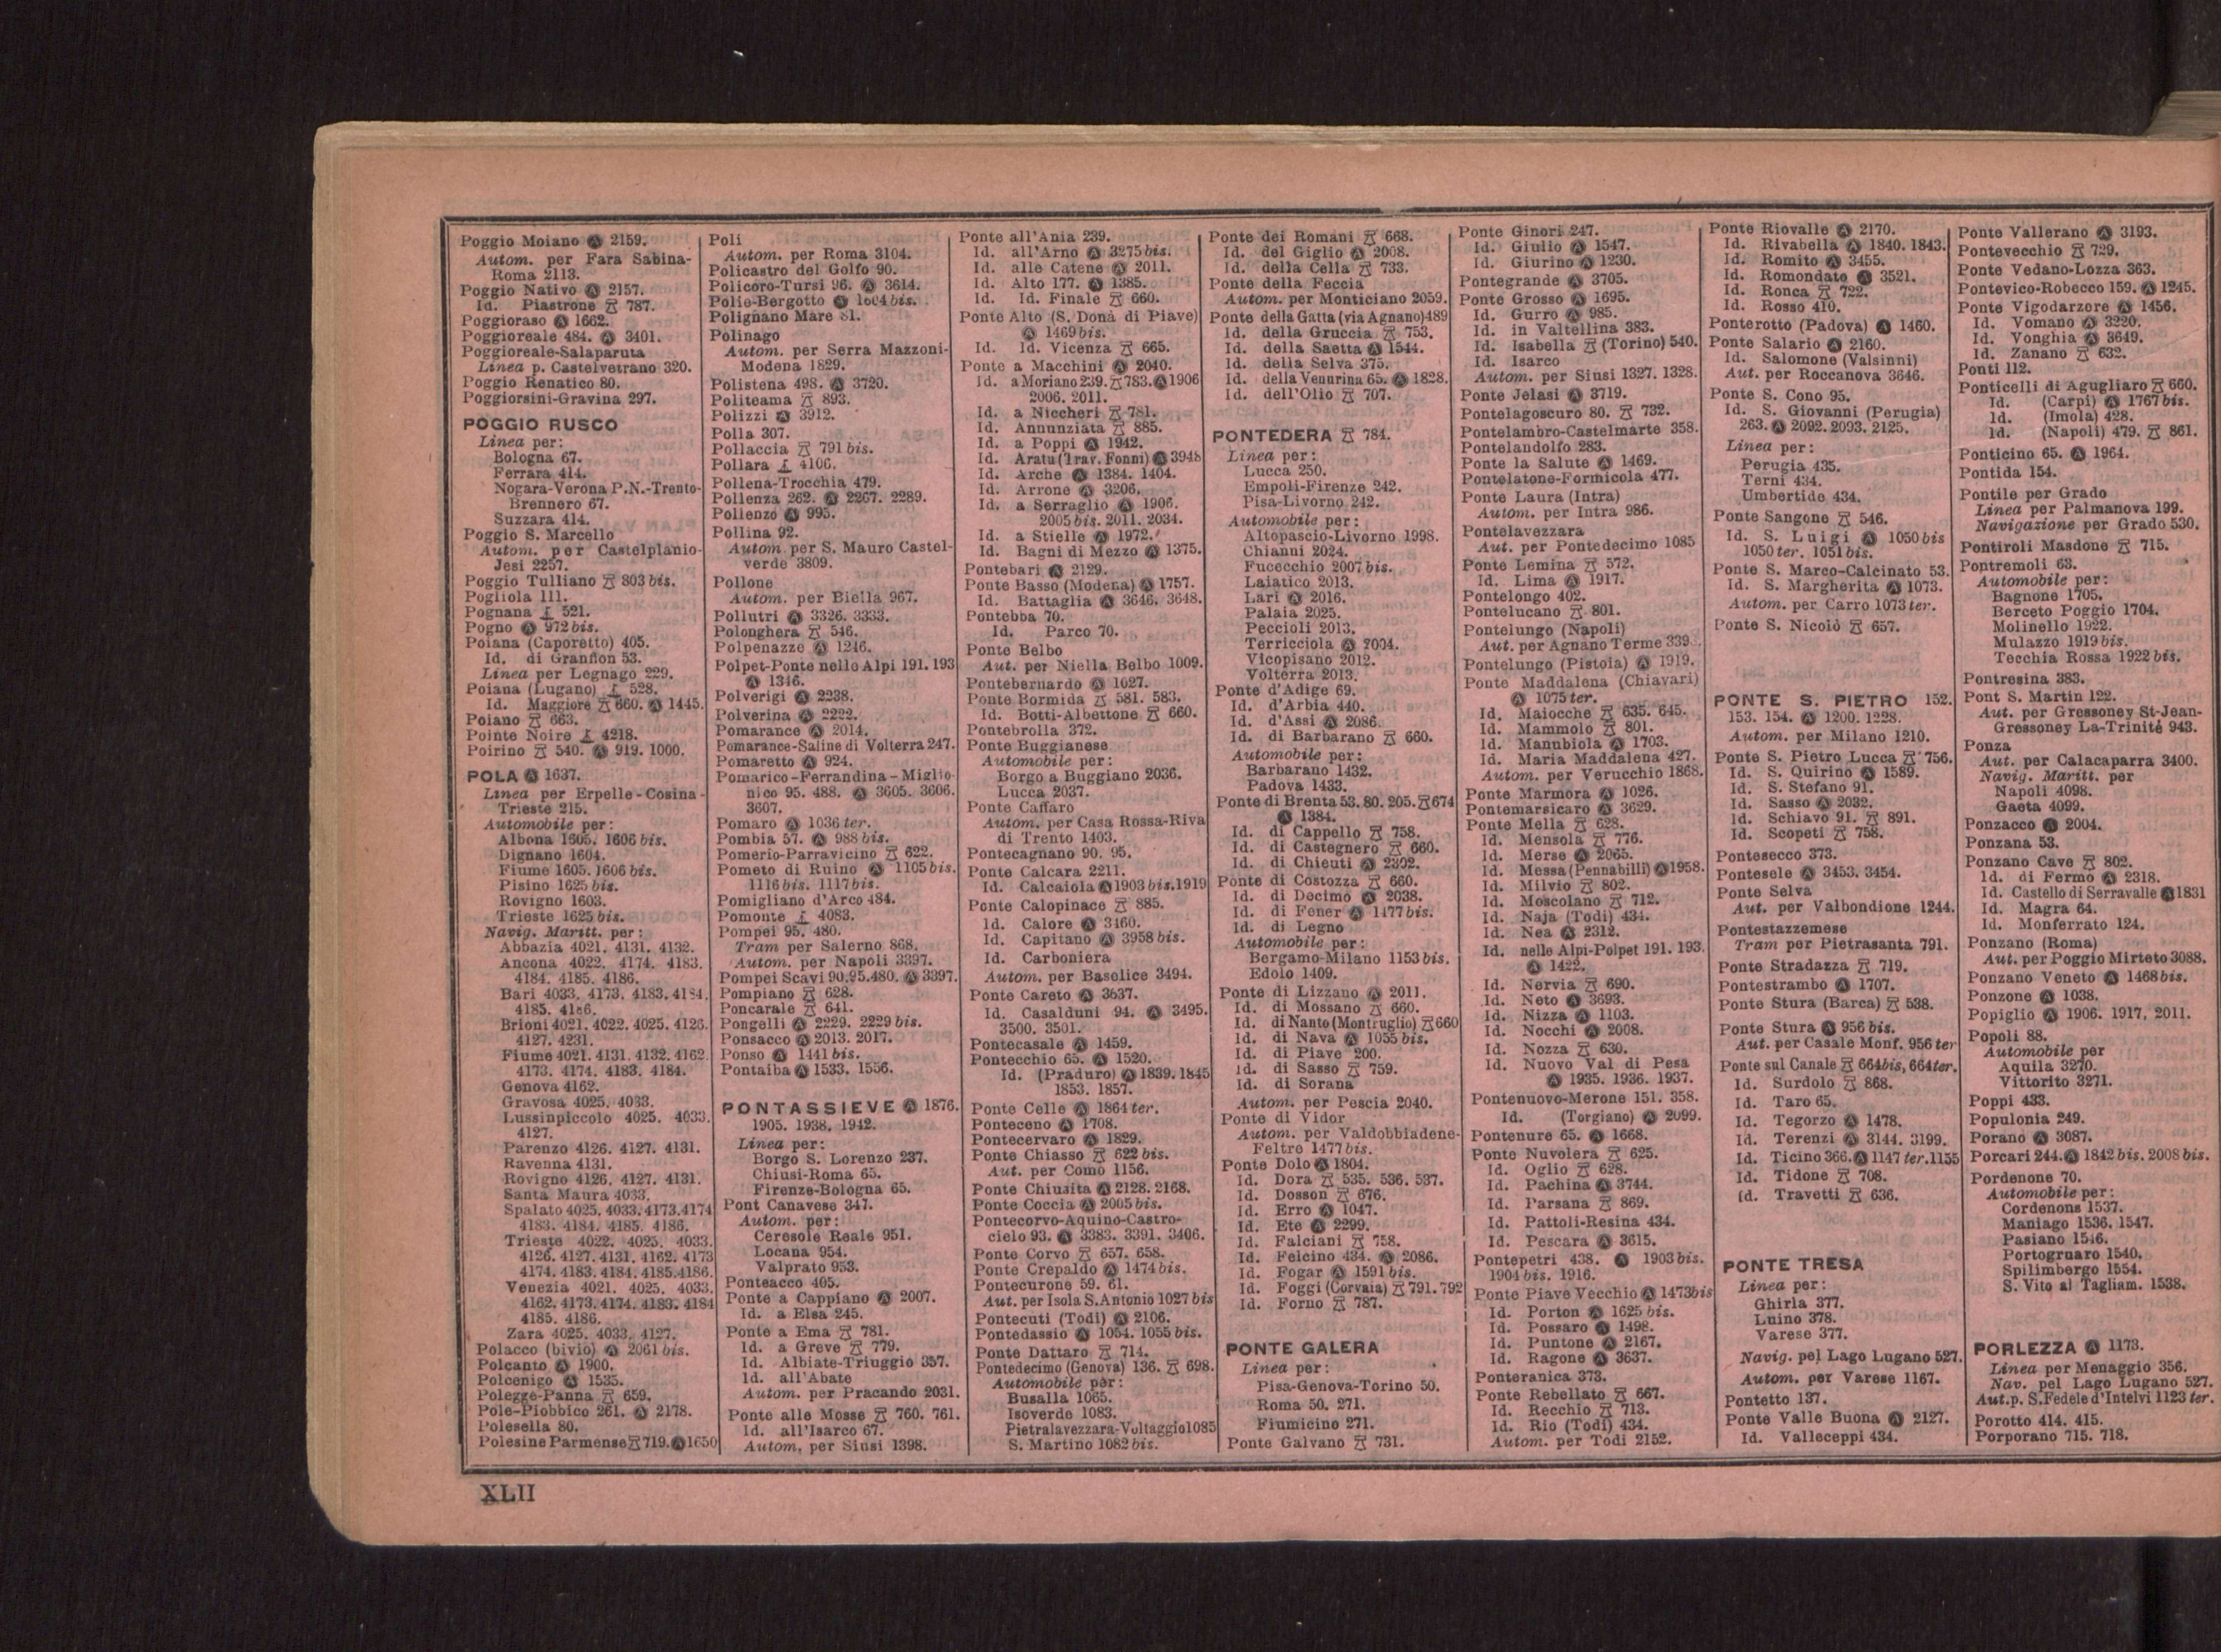 Poggio Moiano Ⓐ 2159.
Autom. per Fara Sabina-
Roma 2113.
Poggio Nativo Ⓐ 2157.
Id. Piastrone 787.
Poggioraso Ⓐ 1662.
Poggioreale 484. Ⓐ 3401.
Poggioreale-Salaparuta
Linea p. Castelvetrano 320.
Poggio Renatico 80.
Poggiorsini-Gravina 297.
POGGIO RUSCO
Linea per:
Bologna 67.
Ferrara 414.
Nogara-Verona P.N.-Trento-
Brennero 67.
Suzzara 414.
Poggio S. Marcello
Autom. per Castelplanio-
Jesi 2257.
Poggio Tulliano 803 bis.
Pogliola 111.
Pognana 521.
Pogno Ⓐ 972 bis.
Poiana (Caporetto) 405.
Id. di Granfion 53.
Linea per Legnago 229.
Poiana (Lugano) 528.
Id. Maggiore 660. Ⓐ 1445.
Poiano 663.
Pointe Noire 4218.
Poirino 540. Ⓐ 919. 1000.
POLA Ⓐ 1637.
Linea per Erpelle-Cosina-
Trieste 215.
Automobile per:
Albona 1605. 1606 bis.
Dignano 1604.
Fiume 1605. 1606 bis.
Pisino 1625 bis.
Rovigno 1603.
Trieste 1625 bis.
Navig. Maritt. per:
Abbazia 4021. 4131. 4132.
Ancona 4022. 4174. 4183.
4184. 4185. 4186.
Bari 4033. 4173. 4183. 4184.
4185. 4186.
Brioni 4021. 4022. 4025. 4126.
4127. 4231.
Fiume 4021. 4131. 4132. 4162.
4173. 4174. 4183. 4184.
Genova 4162.
Gravosa 4025. 4033.
Lussinpiccolo 4025. 4033.
4127.
Parenzo 4126. 4127. 4131.
Ravenna 4131.
Rovigno 4126. 4127. 4131.
Santa Maura 4033.
Spalato 4025. 4033. 4173. 4174
4183. 4184. 4185. 4186.
Trieste 4022. 4025. 4033.
4126. 4127. 4131. 4162. 4173
4174. 4183. 4184. 4185. 4186.
Venezia 4021. 4025. 4033.
4162. 4173. 4174. 4183. 4184
4185. 4186.
Zara 4025. 4033. 4127.
Polacco (bivio) Ⓐ 2061 bis.
Polcanto Ⓐ 1900.
Polcenigo Ⓐ 1535.
Polegge-Panna 659.
Pole-Piobbico 261. Ⓐ 2178.
Polesella 80.
Polesine Parmense 719. Ⓐ 1650
Poli
Autom. per Roma 3104.
Policastro del Golfo 90.
Policoro-Tursi 96. Ⓐ 3614.
Polie-Bergotto Ⓐ 1604 bis.
Polignano Mare 81.
Polinago
Autom. per Serra Mazzoni-
Modena 1829.
Polistena 498. Ⓐ 3720.
Politeama 893.
Polizzi Ⓐ 3912.
Polla 307.
Pollaccia 791 bis.
Pollara 4106.
Pollena-Trocchia 479.
Pollenza 262. Ⓐ 2267. 2289.
Pollenzo Ⓐ 995.
Pollina 92.
Autom. per S. Mauro Castel-
verde 3809.
Pollone
Autom. per Biella 967.
Pollutri Ⓐ 3326. 3333.
Polonghera 546.
Polpenazze Ⓐ 1246.
Polpet-Ponte nelle Alpi 191. 193
Ⓐ 1346.
Polverigi Ⓐ 2238.
Polverina Ⓐ 2222.
Pomarance Ⓐ 2014.
Pomarance-Saline di Volterra 247.
Pomaretto Ⓐ 924.
Pomarico-Ferrandina-Miglio-
nico 95. 488. Ⓐ 3605. 3606.
3607.
Pomaro Ⓐ 1036 ter.
Pombia 57. Ⓐ 988 bis.
Pomerio-Parravicino 622.
Pometo di Ruino Ⓐ 1105 bis.
1116 bis. 1117 bis.
Pomigliano d'Arco 484.
Pomonte 4083.
Pompei 95. 480.
Tram per Salerno 868.
Autom. per Napoli 3397.
Pompei Scavi 90.95.480. Ⓐ 3397.
Pompiano 628.
Poncarale 641.
Pongelli Ⓐ 2229. 2229 bis.
Ponsacco Ⓐ 2013. 2017.
Ponso Ⓐ 1441 bis.
Pontaiba Ⓐ 1533. 1556.
PONTASSIEVE Ⓐ 1876.
1905. 1938. 1942.
Linea per:
Borgo S. Lorenzo 237.
Chiusi-Roma 65.
Firenze-Bologna 65.
Pont Canavese 347.
Autom. per:
Ceresole Reale 951.
Locana 954.
Valprato 953.
Ponteacco 405.
Ponte a Cappiano Ⓐ 2007.
Id. a Elsa 245.
Ponte a Ema 781.
Id. a Greve 779.
Id. Albiate-Triuggio 357.
Id. all'Abate
Autom. per Pracando 2031.
Ponte alle Mosse 760. 761.
Id. all'Isarco 67.
Autom. per Siusi 1398.
Ponte all'Ania 239.
Id. all'Arno Ⓐ 3275 bis.
Id. alle Catene Ⓐ 2011.
Id. Alto 177. Ⓐ 1385.
Id. Id. Finale 660.
Ponte Alto (S. Donà di Piave)
Ⓐ 1469 bis.
Id. Id. Vicenza 665.
Ponte a Macchini Ⓐ 2040.
Id. a Moriano 239. 783. Ⓐ 1906
2006. 2011.
Id. a Niccheri 781.
Id. Annunziata 885.
Id. a Poppi Ⓐ 1942.
Id. Aratu (Trav. Fonni) Ⓐ 3948
Id. Arche Ⓐ 1384. 1404.
Id. Arrone Ⓐ 3206.
Id. a Serraglio Ⓐ 1906.
2005 bis. 2011. 2034.
Id. a Stielle Ⓐ 1972.
Id. Bagni di Mezzo Ⓐ 1375.
Pontebari Ⓐ 2129.
Ponte Basso (Modena) Ⓐ 1757.
Id. Battaglia Ⓐ 3646. 3648.
Pontebba 70.
Id. Parco 70.
Ponte Belbo
Aut. per Niella Belbo 1009.
Pontebernardo Ⓐ 1027.
Ponte Bormida 581. 583.
Id. Botti-Albettone 660.
Pontebrolla 372.
Ponte Buggianese
Automobile per:
Borgo a Buggiano 2036.
Lucca 2037.
Ponte Caffaro
Autom. per Casa Rossa-Riva
di Trento 1403.
Pontecagnano 90. 95.
Ponte Calcara 2211.
Id. Calcaiola Ⓐ 1903 bis.1919
Ponte Calopinace 885.
Id. Calore Ⓐ 3460.
Id. Capitano Ⓐ 3958 bis.
Id. Carboniera
Autom. per Baselice 3494.
Ponte Careto Ⓐ 3637.
Id. Casalduni 94. Ⓐ 3495.
3500. 3501.
Pontecasale Ⓐ 1459.
Pontecchio 65. Ⓐ 1520.
Id. (Praduro) Ⓐ 1839.1845
1853. 1857.
Ponte Celle Ⓐ 1864 ter.
Ponteceno Ⓐ 1708.
Pontecervaro Ⓐ 1829.
Ponte Chiasso 622 bis.
Aut. per Como 1156.
Ponte Chiusita Ⓐ 2128. 2168.
Ponte Coccia Ⓐ 2005 bis.
Pontecorvo-Aquino-Castro-
cielo 93. Ⓐ 3383. 3391. 3406.
Ponte Corvo 657. 658.
Ponte Crepaldo Ⓐ 1474 bis.
Pontecurone 59. 61.
Aut. per Isola S.Antonio 1027 bis
Pontecuti (Todi) Ⓐ 2106.
Pontedassio Ⓐ 1054. 1055 bis.
Ponte Dattaro 714.
Pontedecimo (Genova) 136. 698.
Automobile per:
Busalla 1065.
Isoverde 1083.
Pietralavezzara-Voltaggio1085
S. Martino 1082 bis.
Ponte dei Romani 668.
Id. del Giglio Ⓐ 2008.
Id. della Cella 733.
Ponte della Feccia
Autom. per Monticiano 2059.
Ponte della Gatta (via Agnano)489
Id. della Gruccia 753.
Id. della Saetta Ⓐ 1544.
Id. della Selva 375.
Id. della Venurina 65. Ⓐ 1828.
Id. dell'Olio 707.
PONTEDERA 784.
Linea per:
Lucca 250.
Empoli-Firenze 242.
Pisa-Livorno 242.
Automobile per:
Altopascio-Livorno 1998.
Chianni 2024.
Fucecchio 2007 bis.
Laiatico 2013.
Lari Ⓐ 2016.
Palaia 2025.
Peccioli 2013.
Terricciola Ⓐ 2004.
Vicopisano 2012.
Volterra 2013.
Ponte d'Adige 69.
Id. d'Arbia 440.
Id. d'Assi Ⓐ 2086.
Id. di Barbarano 660.
Automobile per:
Barbarano 1432.
Padova 1433.
Ponte di Brenta 53. 80. 205. 674
Ⓐ 1384.
Id. di Cappello 758.
Id. di Castegnero 660.
Id. di Chieuti Ⓐ 2302.
Ponte di Costozza 660.
Id. di Decimo Ⓐ 2038.
Id. di Fener Ⓐ 1477 bis.
Id. di Legno
Automobile per:
Bergamo-Milano 1153 bis.
Edolo 1409.
Ponte di Lizzano Ⓐ 2011.
Id. di Mossano 660.
Id. di Nanto (Montruglio) 660
Id. di Nava Ⓐ 1055 bis.
Id. di Piave 200.
Id. di Sasso 759.
Id. di Sorana
Autom. per Pescia 2040.
Ponte di Vidor
Autom. per Valdobbiadene-
Feltre 1477 bis.
Ponte Dolo Ⓐ 1804.
Id. Dora 535. 536. 537.
Id. Dosson 676.
Id. Erro Ⓐ 1047.
Id. Ete Ⓐ 2299.
Id. Falciani 758.
Id. Felcino 434. Ⓐ 2086.
Id. Fogar Ⓐ 1591 bis.
Id. Foggi (Corvaia) 791. 792
Id. Forno 787.
PONTE GALERA
Linea per:
Pisa-Genova-Torino 50.
Roma 50. 271.
Fiumicino 271.
Ponte Galvano 731.
Ponte Ginori 247.
Id. Giulio Ⓐ 1547.
Id. Giurino Ⓐ 1230.
Pontegrande Ⓐ 3705.
Ponte Grosso Ⓐ 1695.
Id. Gurro Ⓐ 985.
Id. in Valtellina 383.
Id. Isabella (Torino) 540.
Id. Isarco
Autom. per Siusi 1327. 1328.
Ponte Jelasi Ⓐ 3719.
Pontelagoscuro 80. 732.
Pontelambro-Castelmarte 358.
Pontelandolfo 283.
Ponte la Salute Ⓐ 1469.
Pontelatone-Formicola 477.
Ponte Laura (Intra)
Autom. per Intra 986.
Pontelavezzara
Aut. per Pontedecimo 1085
Ponte Lemina 572.
Id. Lima Ⓐ 1917.
Pontelongo 402.
Pontelucano 801.
Pontelungo (Napoli)
Aut. per Agnano Terme 339
Pontelungo (Pistoia) Ⓐ 1919.
Ponte Maddalena (Chiavari)
Ⓐ 1075 ter.
Id. Maiocche 635. 645.
Id. Mammolo 801.
Id. Manubiola Ⓐ 1703.
Id. Maria Maddalena 427.
Autom. per Verucchio 1868.
Ponte Marmora Ⓐ 1026.
Pontemarsicaro Ⓐ 3629.
Ponte Mella 628.
Id. Mensola 776.
Id. Merse Ⓐ 2065.
Id. Messa (Pennabilli) Ⓐ 1958.
Id. Milvio 802.
Id. Moscolano 712.
Id. Naja (Todi) 434.
Id. Nea Ⓐ 2312.
Id. nelle Alpi-Polpet 191. 193.
Ⓐ 1422.
Id. Nervia 690.
Id. Neto Ⓐ 3693.
Id. Nizza Ⓐ 1103.
Id. Nocchi Ⓐ 2008.
Id. Nozza 630.
Id. Nuovo Val di Pesa
Ⓐ 1935. 1936. 1937.
Pontenuovo-Merone 151. 358.
Id. (Torgiano) Ⓐ 2099.
Pontenure 65. Ⓐ 1668.
Ponte Nuvolera 625.
Id. Oglio 628.
Id. Pachina Ⓐ 3744.
Id. Parsana 869.
Id. Pattoli-Resina 434.
Id. Pescara Ⓐ 3615.
Pontepetri 438. Ⓐ 1903 bis.
1904 bis. 1916.
Ponte Piave Vecchio Ⓐ 1473bis
Id. Porton Ⓐ 1625 bis.
Id. Possaro Ⓐ 1498.
Id. Puntone Ⓐ 2167.
Id. Ragone Ⓐ 3637.
Ponteranica 373.
Ponte Rebellato 667.
Id. Recchio 713.
Id. Rio (Todi) 434.
Autom. per Todi 2152.
Ponte Riovalle Ⓐ 2170.
Id. Rivabella Ⓐ 1840. 1843.
Id. Romito Ⓐ 3455.
Id. Romondato Ⓐ 3521.
Id. Ronca 722.
Id. Rosso 410.
Ponterotto (Padova) Ⓐ 1460.
Ponte Salario Ⓐ 2160.
Id. Salomone (Valsinni)
Aut. per Roccanova 3646.
Ponte S. Cono 95.
Id. S. Giovanni (Perugia)
263. Ⓐ 2092. 2093. 2125.
Linea per:
Perugia 435.
Terni 434.
Umbertide 434.
Ponte Sangone 546.
Id. S. Luigi Ⓐ 1050 bis
1050 ter. 1051 bis.
Ponte S. Marco-Calcinato 53.
Id. S. Margherita Ⓐ 1073.
Autom. per Carro 1073 ter.
Ponte S. Nicolò 657.
PONTE S. PIETRO 152.
153. 154. Ⓐ 1200. 1228.
Autom. per Milano 1210.
Ponte S. Pietro Lucca 756.
Id. S. Quirino Ⓐ 1589.
Id. S. Stefano 91.
Id. Sasso Ⓐ 2032.
Id. Schiavo 91. 891.
Id. Scopeti 758.
Pontesecco 373.
Pontesele Ⓐ 3453. 3454.
Ponte Selva
Aut. per Valbondione 1244.
Pontestazzemese
Tram per Pietrasanta 791.
Ponte Stradazza 719.
Pontestrambo Ⓐ 1707.
Ponte Stura (Barca) 538.
Ponte Stura Ⓐ 956 bis.
Aut. per Casale Monf. 956 ter
Ponte sul Canale 664bis, 664ter.
Id. Surdolo 868.
Id. Taro 65.
Id. Tegorzo Ⓐ 1478.
Id. Terenzi Ⓐ 3144. 3199.
Id. Ticino 366. Ⓐ 1147 ter.1155
Id. Tidone 708.
Id. Travetti 636.
PONTE TRESA
Linea per:
Ghirla 377.
Luino 378.
Varese 377.
Navig. pel Lago Lugano 527.
Autom. per Varese 1167.
Pontetto 137.
Ponte Valle Buona Ⓐ 2127.
Id. Valleceppi 434.
Ponte Vallerano Ⓐ 3193.
Pontevecchio 729.
Ponte Vedano-Lozza 363.
Pontevico-Robecco 159. Ⓐ 1245.
Ponte Vigodarzere Ⓐ 1456.
Id. Vomano Ⓐ 3220.
Id. Vonghia Ⓐ 3649.
Id. Zanano 632.
Ponti 112.
Ponticelli di Agugliaro 660.
Id. (Carpi) Ⓐ 1767 bis.
Id. (Imola) 428.
Id. (Napoli) 479. 861.
Ponticino 65. Ⓐ 1964.
Pontida 154.
Pontile per Grado
Linea per Palmanova 199.
Navigazione per Grado 530.
Pontiroli Masdone 715.
Pontremoli 63.
Automobile per:
Bagnone 1705.
Berceto Poggio 1704.
Molinello 1922.
Mulazzo 1919 bis.
Tecchia Rossa 1922 bis.
Pontresina 383.
Pont S. Martin 122.
Aut. per Gressoney St-Jean-
Gressoney La-Trinité 943.
Ponza
Aut. per Calacaparra 3400.
Navig. Maritt. per
Napoli 4098.
Gaeta 4099.
Ponzacco Ⓐ 2004.
Ponzana 53.
Ponzano Cave 802.
Id. di Fermo Ⓐ 2318.
Id. Castello di Serravalle Ⓐ 1831
Id. Magra 64.
Id. Monferrato 124.
Ponzano (Roma)
Aut. per Poggio Mirteto 3088.
Ponzano Veneto Ⓐ 1468 bis.
Ponzone Ⓐ 1038.
Popiglio Ⓐ 1906. 1917, 2011.
Popoli 88.
Automobile per
Aquila 3270.
Vittorito 3271.
Poppi 433.
Populonia 249.
Porano Ⓐ 3087.
Porcari 244. Ⓐ 1842 bis. 2008 bis.
Pordenone 70.
Automobile per:
Cordenons 1537.
Maniago 1536. 1547.
Pasiano 1546.
Portogruaro 1540.
Spilimbergo 1554.
S. Vito al Tagliam. 1538.
PORLEZZA Ⓐ 1173.
Linea per Menaggio 356.
Nav. pel Lago Lugano 527.
Aut.p. S.Fedele d'Intelvi 1123 ter.
Porotto 414. 415.
Porporano 715. 718.
XLII